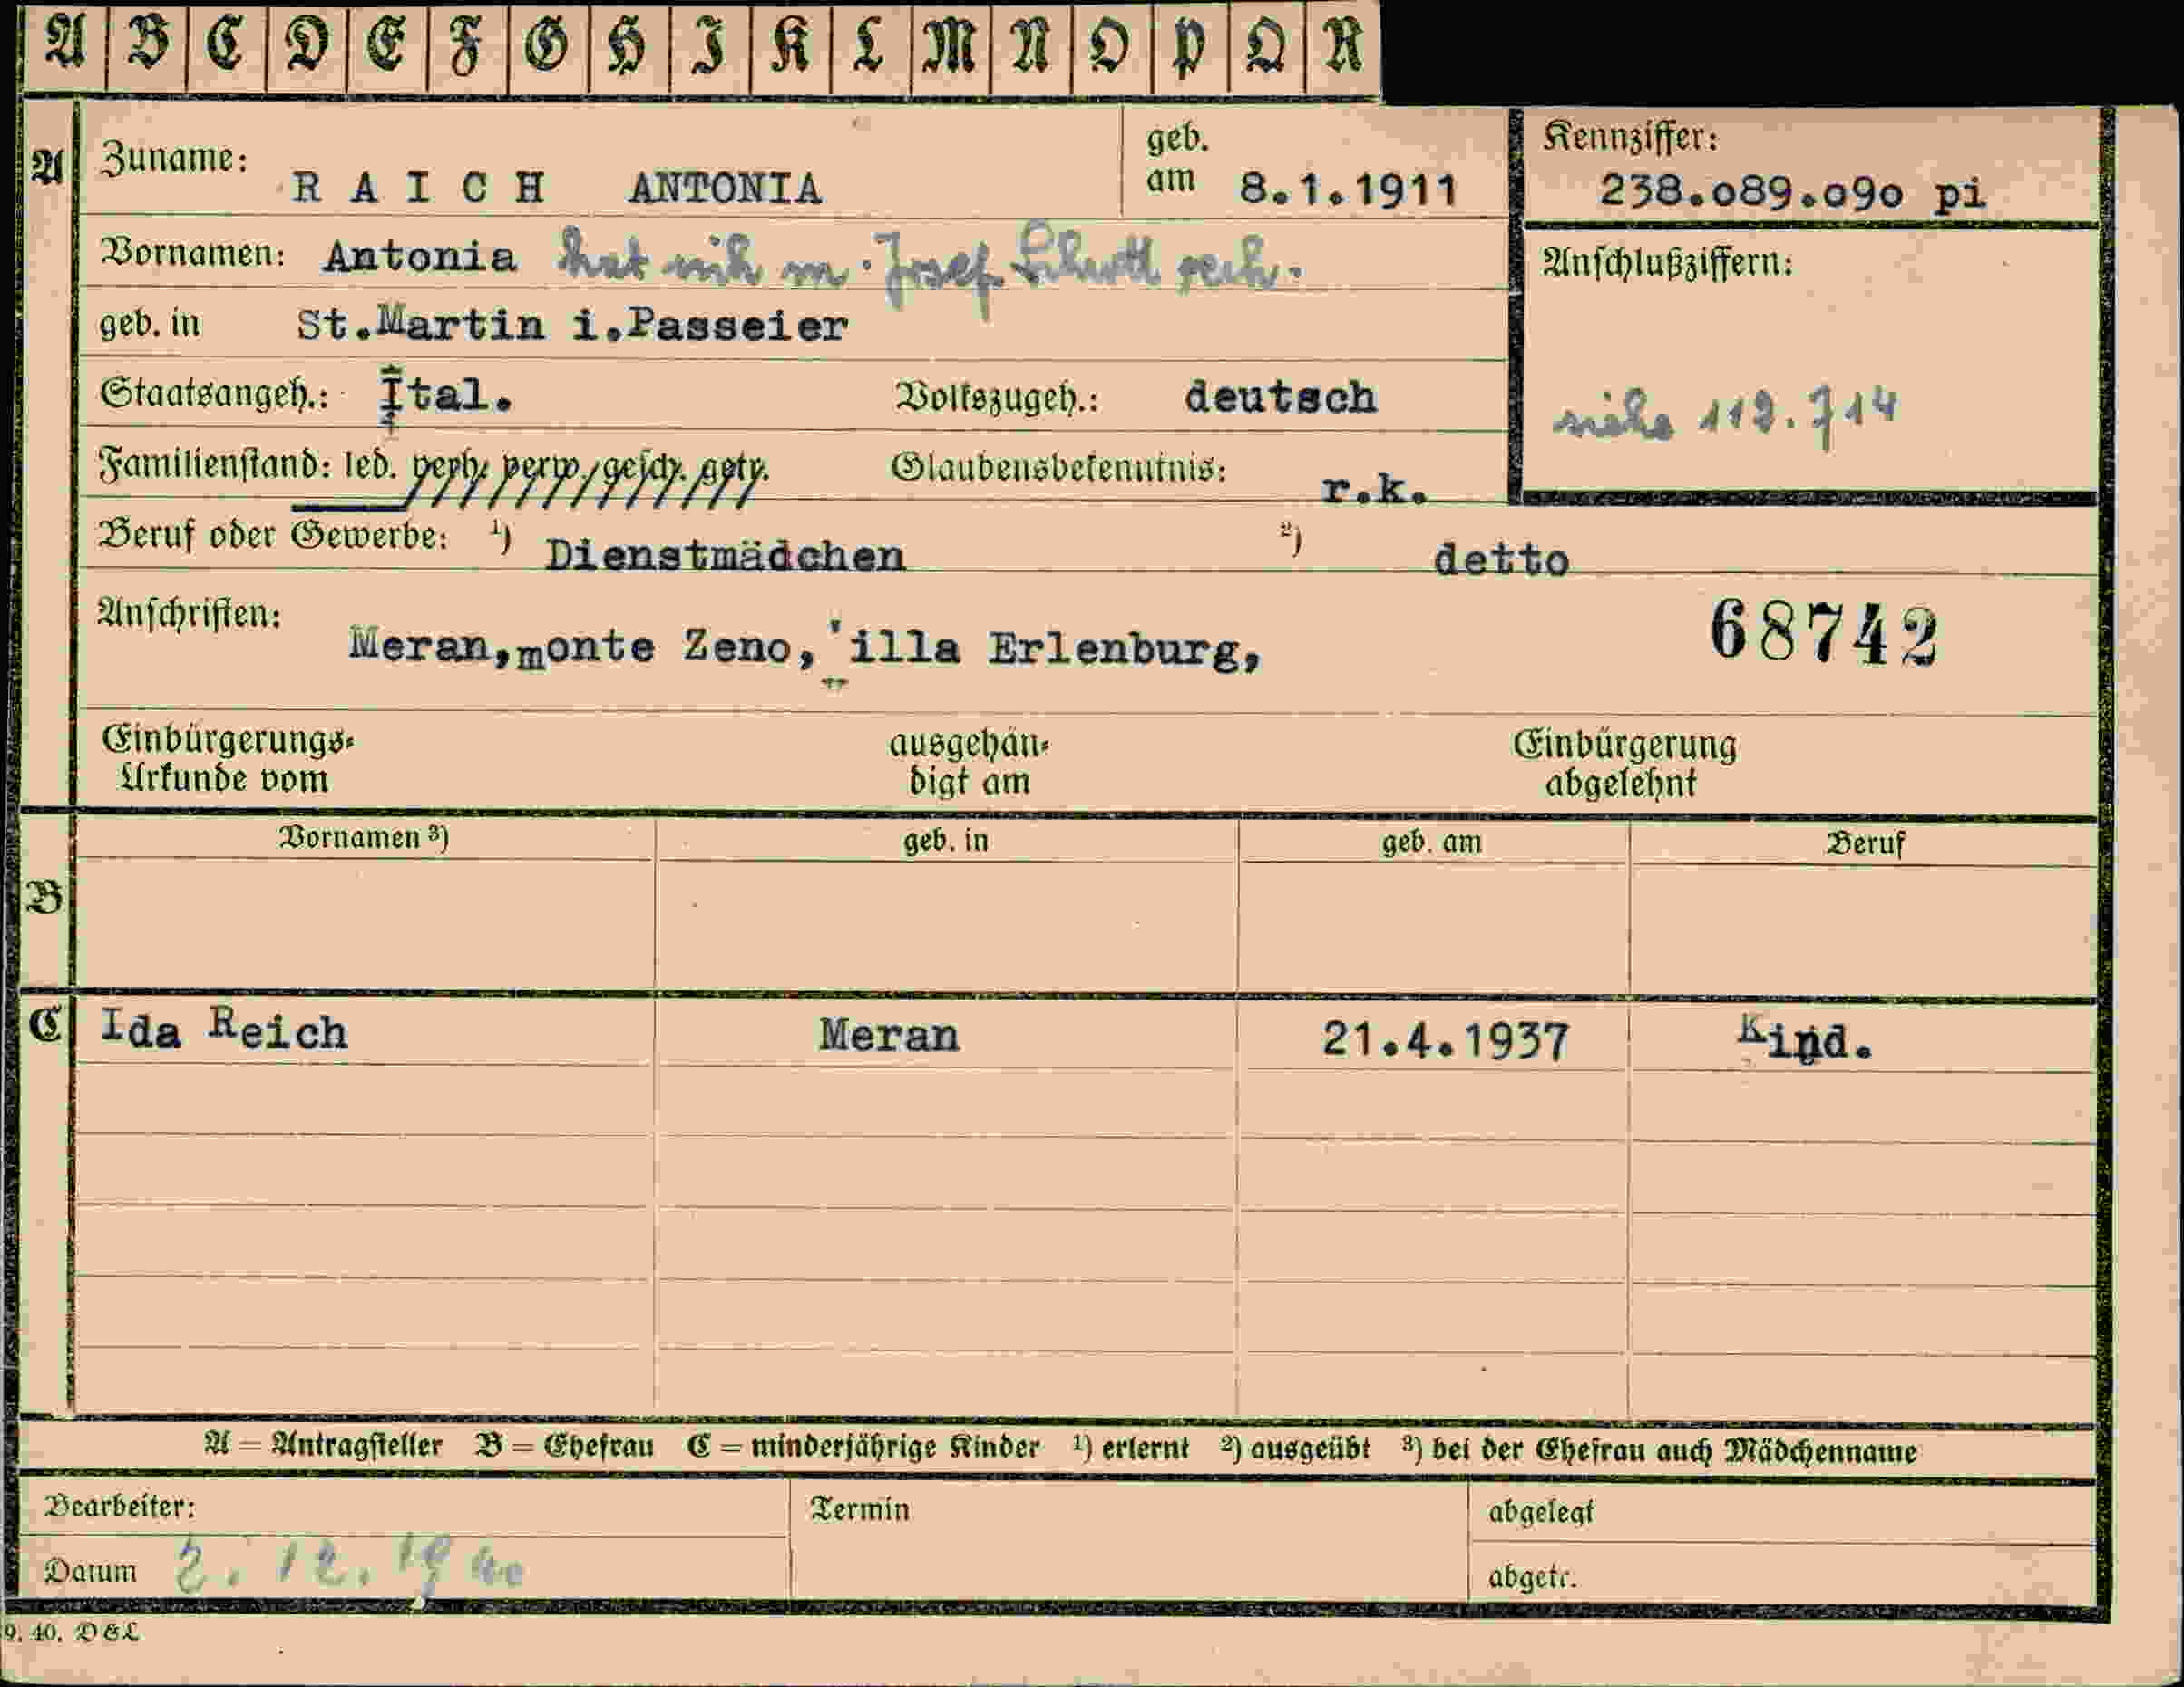 A B C D E F G H I K L M N O P Q R
A
Zuname: RAICH ANTONIA
geb. am 8.1.1911
Kennziffer:
238.o89.o9o pi
Vornamen: Antonia hat sich m. Josef
Anschlußziffern:
geb. in St.Martin i.Passeier
Staatsangeh.: Ital. Volkszugeh.: deutsch
siehe 112.714
Familienstand: led. verh. verw. gesch. getr. Glaubensbekenntnis: r.k.
Beruf oder Gewerbe: 1) Dienstmädchen 2) detto
Anschriften: Meran,monte Zeno,'illa Erlenburg,
68742
Einbürgerungs-Urkunde vom
ausgehändigt am
Einbürgerung abgelehnt
B
Vornamen 3) geb. in geb. am Beruf
C
Ida Reich Meran 21.4.1937 Kind.
A = Antragsteller B = Ehefrau C = minderjährige Kinder 1) erlernt 2) ausgeübt 3) bei der Ehefrau auch Mädchenname
Bearbeiter: Termin abgelegt
Datum 2.12.1940 abgetr.
9. 40. D&L